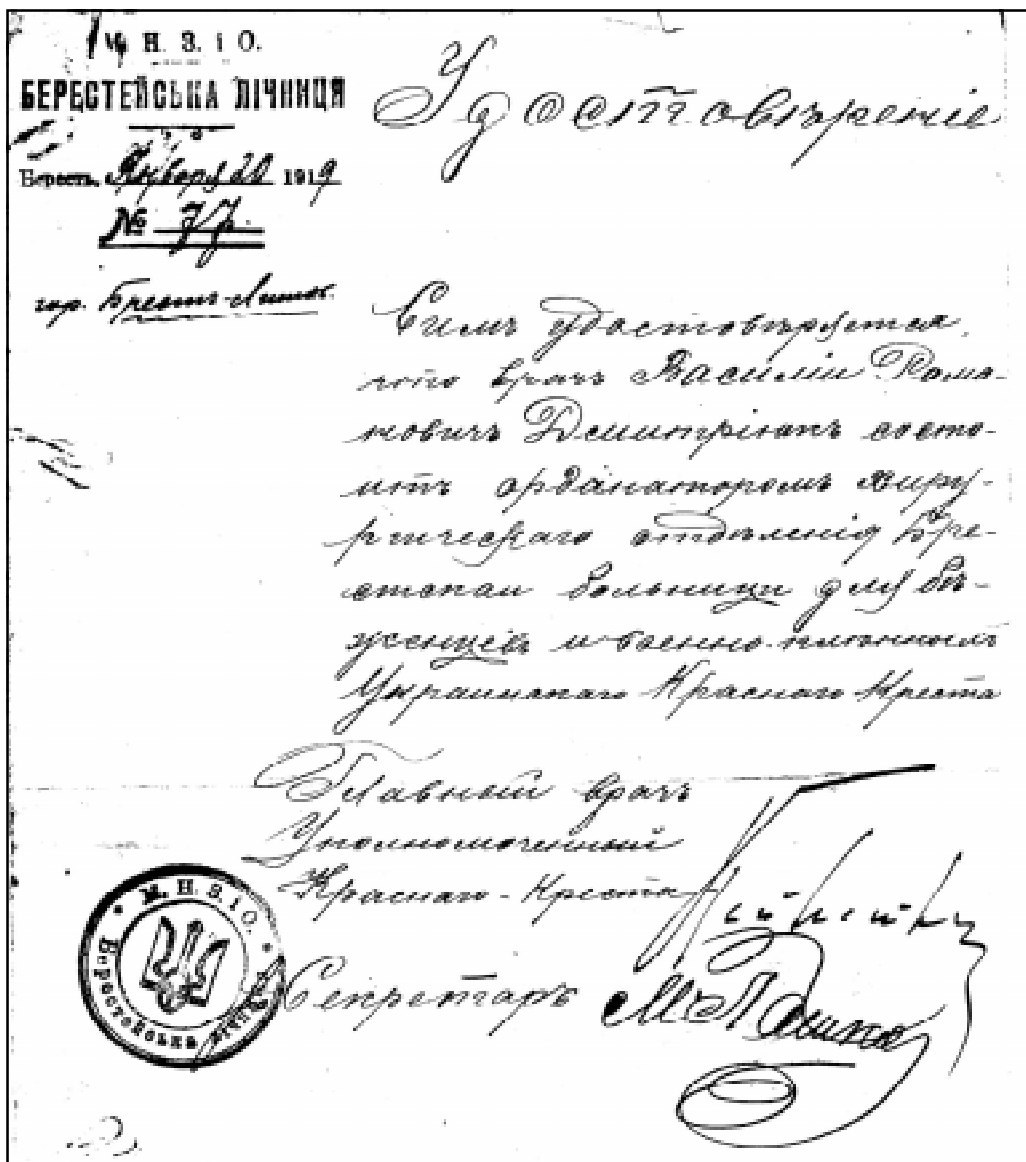 М. Н. З. і О.
БЕРЕСТЕЙСЬКА ЛІЧНИЦЯ
Берестъ, Января 20 1919
№ 77
гор. Брестъ-Литов.
Удостовѣреніе
Симъ удостовѣряется,
что врачъ Василій Рома-
новичъ Дмитріюкъ состо-
итъ ординаторомъ хирур-
гическаго отдѣленія Бре-
стской больницы для бѣ-
женцевъ и военно-плѣнныхъ
Украинскаго Краснаго Креста
Главный врачъ
Уполномоченный
Краснаго-Креста
Секретарь
М. Н. З. і О.
Берестейська лічниця